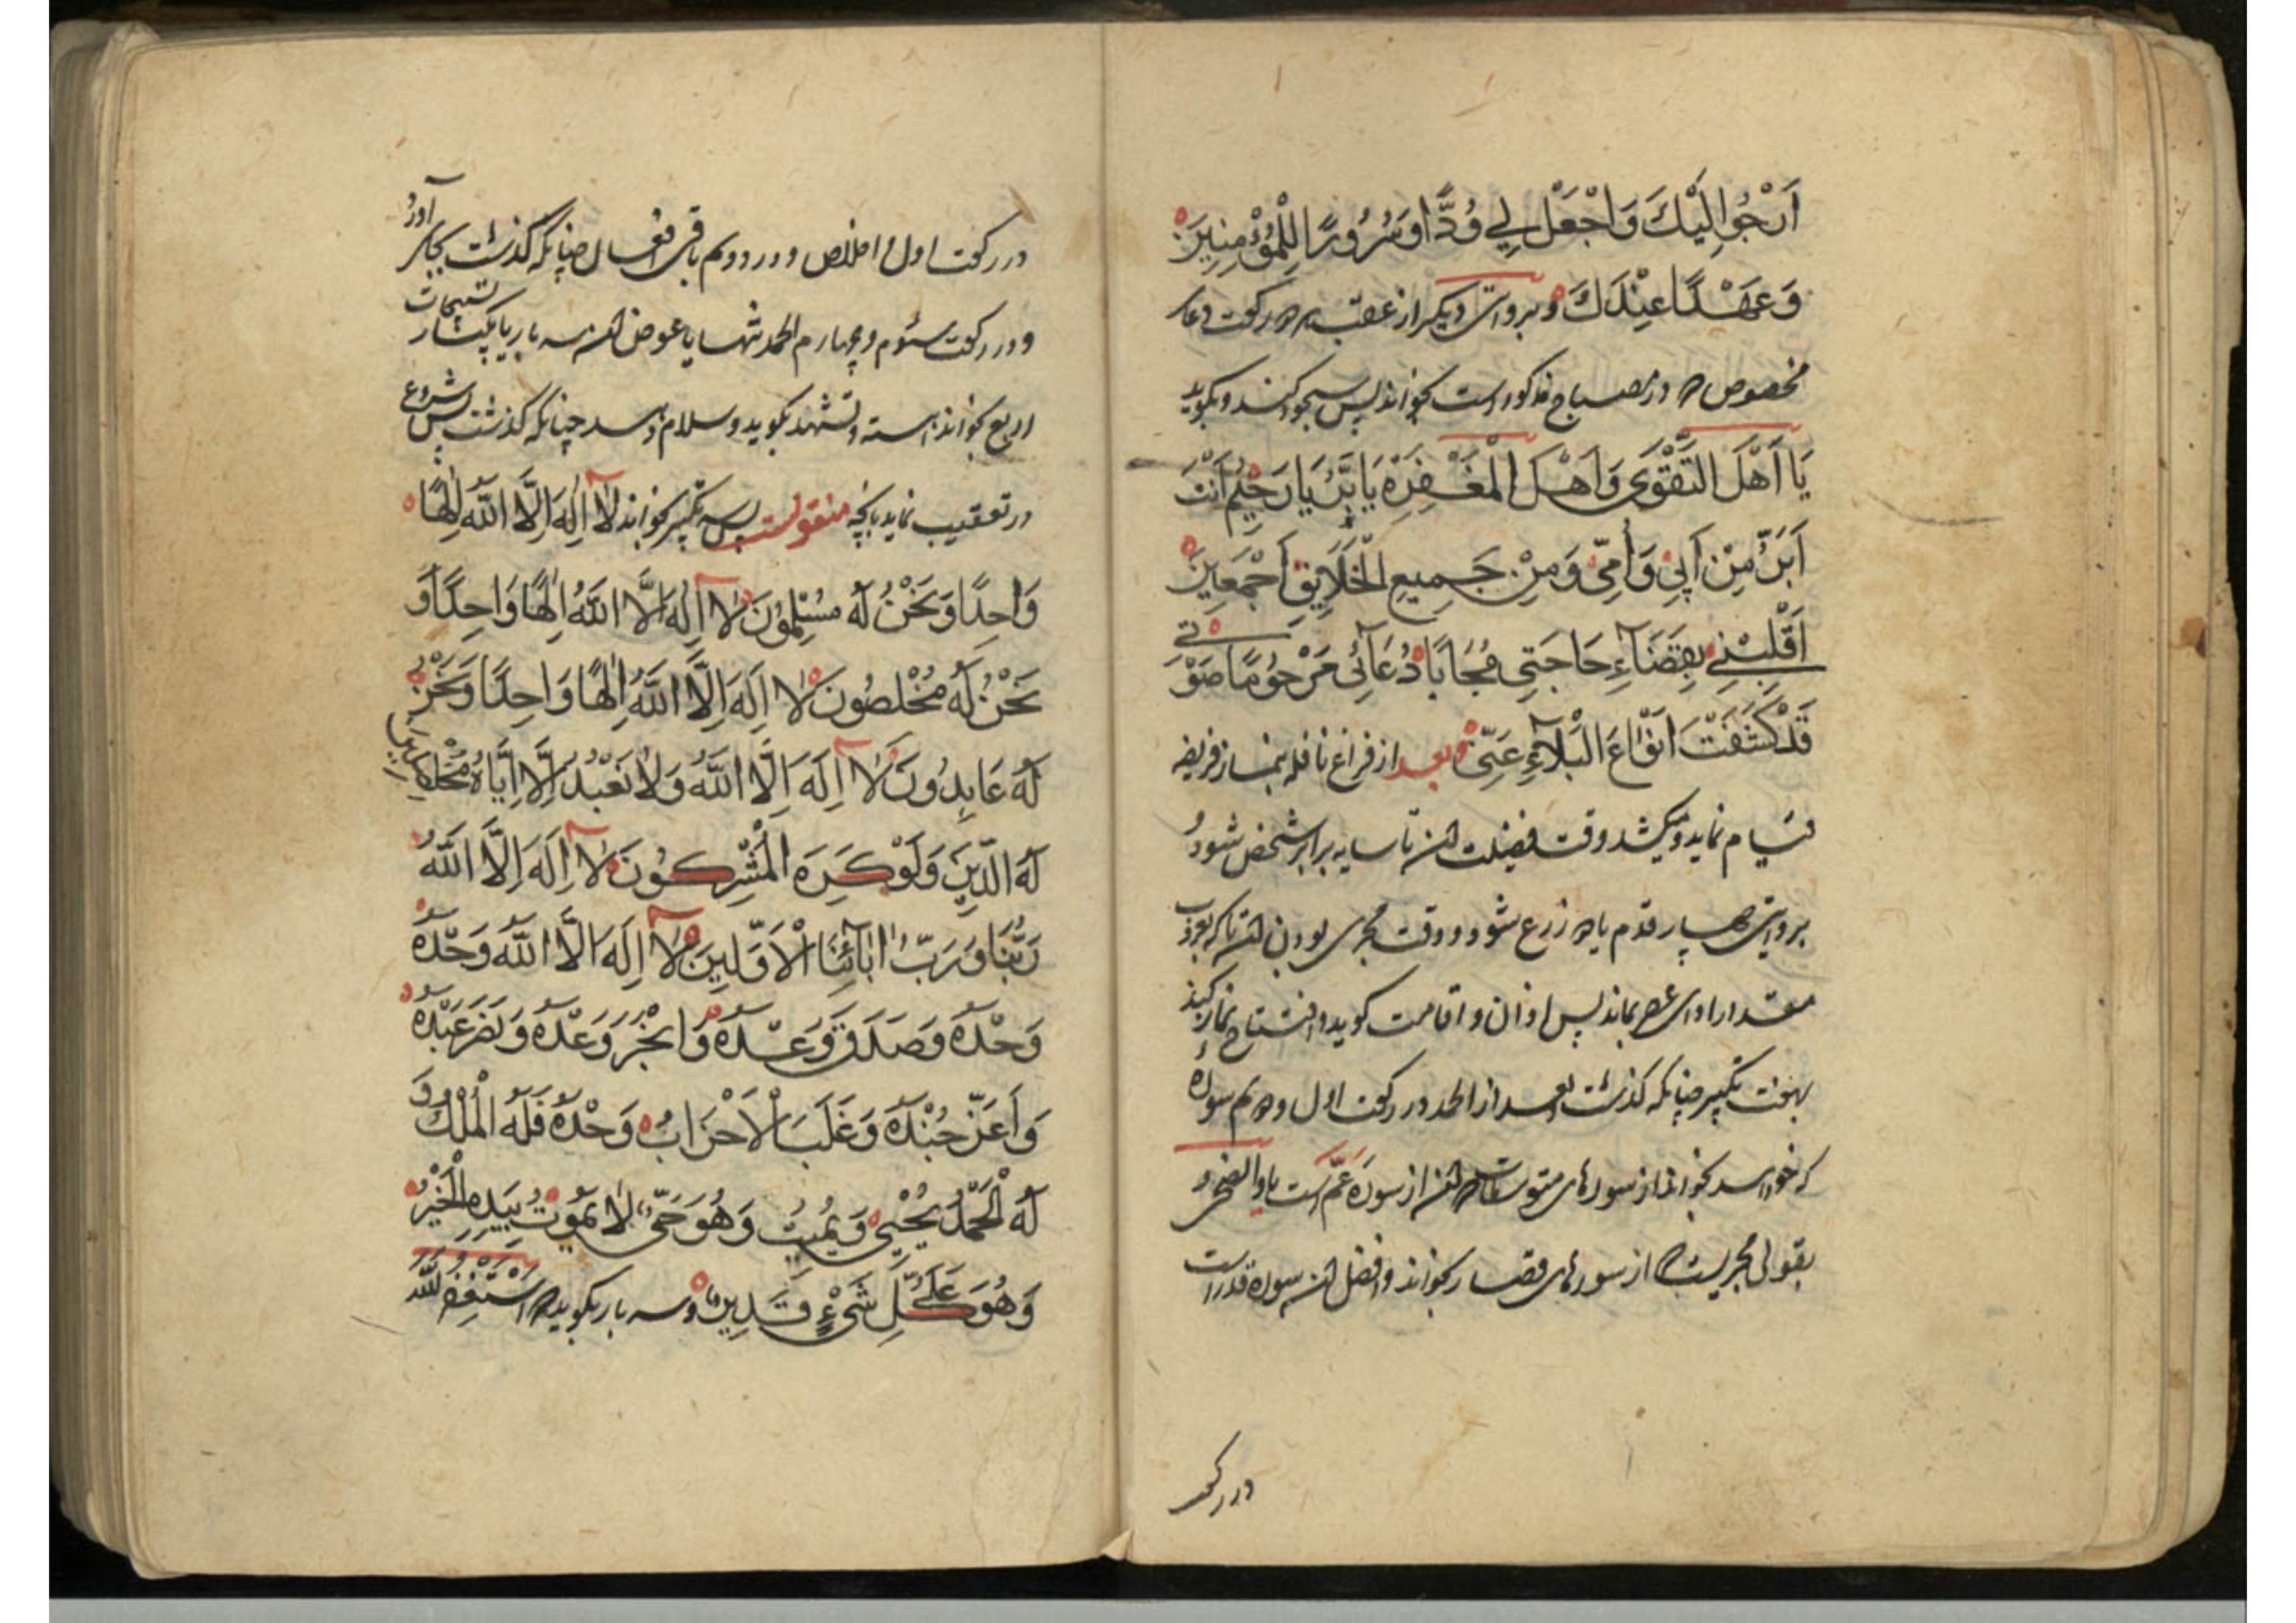 اَرْجُوا اِلَيْكَ وَاجْعَلْ لِي وُدًّا وَسُرُورًا لِلْمُؤْمِنِينَ
وَعَهْدًا عِنْدَكَ و بروایتی دیگر از عقب هر دو رکعت دعاء
مخصوص که در مصباح مذکور است بخواند پس سجود کند و بگوید
يَا اَهْلَ التَّقْوَى وَاَهْلَ الْمَغْفِرَةِ يَا بَرُّ يَا رَحِيمُ اَنْتَ
اَبَرُّ مِنْ اَبِي وَاُمِّي وَمِنْ جَمِيعِ الْخَلَايِقِ اَجْمَعِينَ
اَقْلِبْنِي بِقَضَاءِ حَاجَتِي مُجَابًا دُعَائِي مَرْحُومًا صَوْتِي
قَدْ كَشَفْتَ اَنْوَاعَ الْبَلَاءِ عَنِّي و بعد از فراغ نافله بنماز فریضه
قیام نماید و میکشد وقت فضیلت آن تا سایه برابر شخص شود و
بروایتی چهار قدم یا دو زرع شود و وقت مجزی بودن آن تا که بغروب
مقدار ادای عصر بماند پس اذان و اقامت کوید و افتتاح نماز کند
بهفت تکبیر چنانکه کذشت و بعد از الحمد در رکعت اول و دوم سوره
که خواسد بخواند از سورهای متوسطات که آن از سورۀ عمّ است یا والضحی و
بقولی مجزیست که از سورهای قصار بخواند و افضل آن سوره قدر است
در رکعت
در رکعت اول و اخلاص و در دویم باقی افعال چنانکه کذشت بجای آورد
و در رکعت سیوم و چهارم الحمد تنها یا عوض آن سه بار یا یکبار تسبیحات
اربع بخواند آهسته و تشهد بکوید و سلام دهد چنانکه کذشت پس شروع
در تعقیب نماید بآنچه منقولست پس سه تکبیر بخواند لَا اِلَهَ اِلَّا اللّٰهُ اِلٰهًا
وَاحِدًا وَنَحْنُ لَهُ مُسْلِمُونَ لَا اِلَهَ اِلَّا اللّٰهُ اِلٰهًا وَاحِدًا وَ
نَحْنُ لَهُ مُخْلِصُونَ لَا اِلَهَ اِلَّا اللّٰهُ اِلٰهًا وَاحِدًا وَنَحْنُ
لَهُ عَابِدُونَ لَا اِلَهَ اِلَّا اللّٰهُ وَلَا نَعْبُدُ اِلَّا اِيَّاهُ مُخْلِصِينَ
لَهُ الدِّينَ وَلَوْ كَرِهَ الْمُشْرِكُونَ لَا اِلَهَ اِلَّا اللّٰهُ
رَبُّنَا وَرَبُّ اٰبَائِنَا الْاَوَّلِينَ لَا اِلَهَ اِلَّا اللّٰهُ وَحْدَهُ
وَحْدَهُ وَصَدَقَ وَعْدَهُ وَاَنْجَزَ وَعْدَهُ وَنَصَرَ عَبْدَهُ
وَاَعَزَّ جُنْدَهُ وَغَلَبَ الْاَحْزَابَ وَحْدَهُ فَلَهُ الْمُلْكُ وَ
لَهُ الْحَمْدُ يُحْيِي وَيُمِيتُ وَهُوَ حَيٌّ لَا يَمُوتُ بِيَدِهِ الْخَيْرُ
وَهُوَ عَلَى كُلِّ شَيْءٍ قَدِيرٌ و سه بار بکوید که اَسْتَغْفِرُ اللّٰهَ